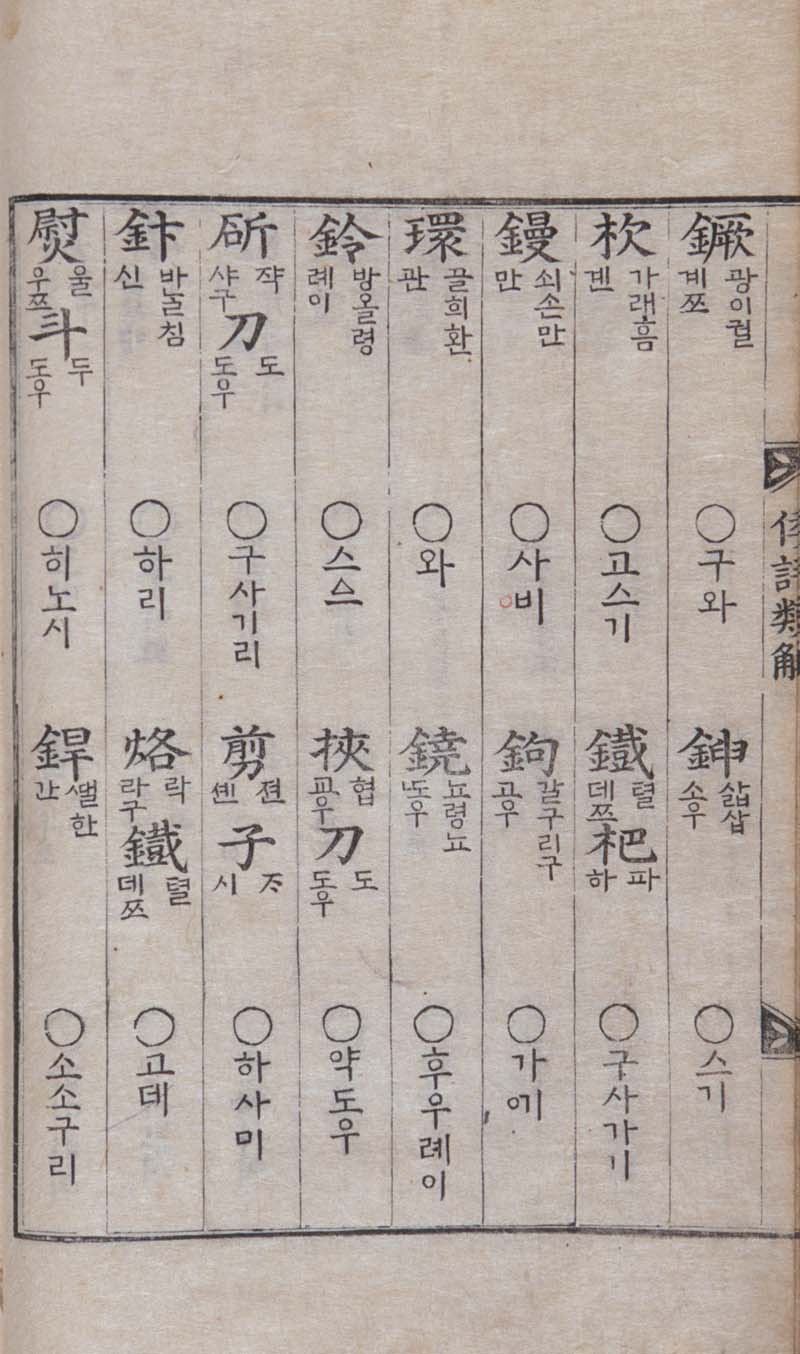 倭語類解
鐝 광이궐 게쯔 ○구와
鉮 삷삽 소우 ○스기
杴 가래흠 겐 ○고스기
鐵 텰 데쯔 杷 파 하 ○구사가기
鏝 쇠손만 만 ○사비
鉤 갈구리구 고우 ○가예
環 골희환 관 ○와
鐃 뇨령뇨 도우 ○후우례이
鈴 방올령 례이 ○스스
挾 협 교우 刀 도 도우 ○약도우
斫 쟉 샤구 刀 도 도우 ○구사기리
剪 젼 셴 子 시 ○하사미
침 신 ○하리
烙 락 라구 鐵 텰 데쯔 ○고데
熨 울 우쯔 斗 두 도우 ○히노시
銲 한 간 ○소소구리